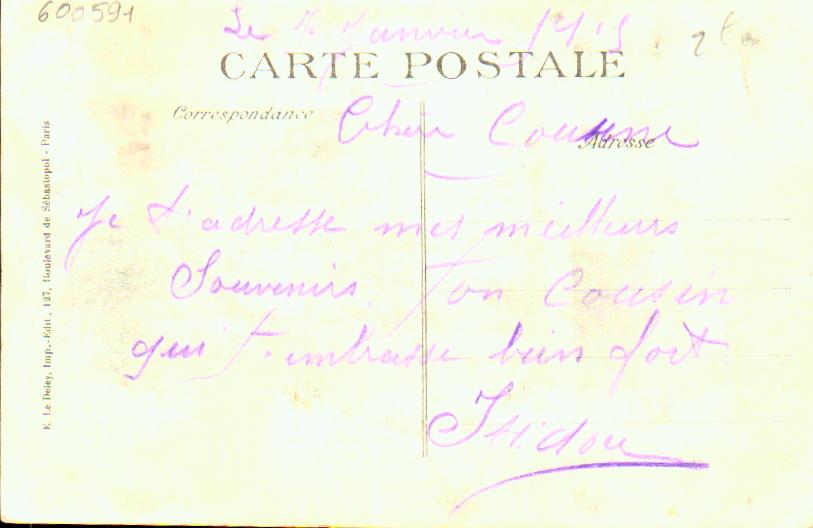 600591
Le 7 Janvier 1915
CARTE POSTALE
Correspondance
Adresse
Cher Cousine
Je t'adresse mes meilleurs
Souvenirs. Ton Cousin
qui t'embrasse bien fort
Isidore
E. Le Deley, Imp.-Edit., 127, Boulevard de Sébastopol - Paris